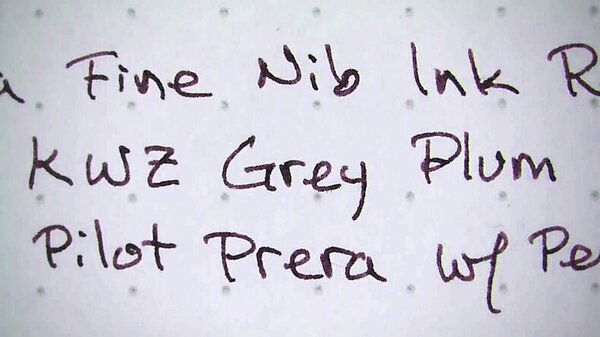 a Fine Nib Ink R
KWZ Grey Plum
Pilot Prera w/ Pe